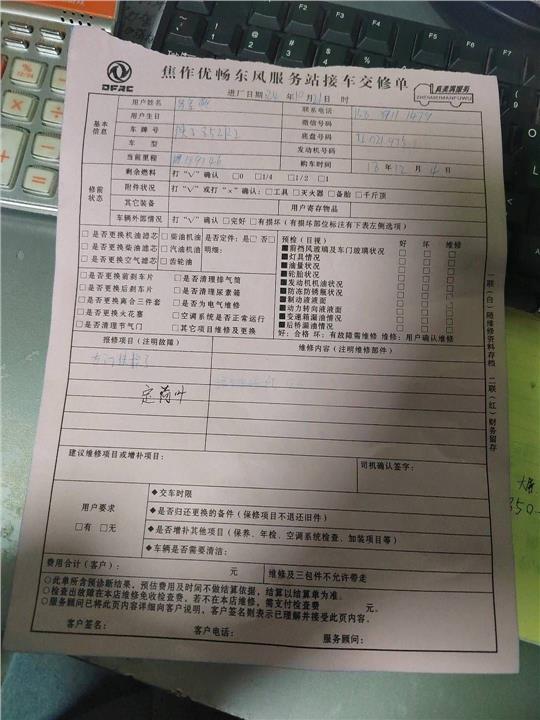 DFAC
焦作优畅东风服务站接车交修单
真美满服务
ZHENMEIMANFUWU
进厂日期 年10月 日 时
基本信息
用户姓名
联系电话
用户生日
微信号码
车牌号
底盘号码
车型
发动机号码
当前里程
购车时间
修前状态
剩余燃料 打“V”确认 □0 □1/4 □1/2 □1
附件状况 打“V”或打“×”确认:□工具 □灭火器 □备胎 □千斤顶
其它装备 用户寄存物品
车辆外部情况 打“V”确认 □完好 □有损坏(有损坏部位标注有下表左侧选项)
□是否更换机油滤芯 □柴油机油 是否定件:是□否□
□是否更换柴油滤芯 □汽油机油 明细:
□是否更换空气滤芯 □齿轮油
□是否更换前刹车片 □是否清理排气筒
□是否更换后刹车片 □是否清理尿素箱
□是否更换离合三件套 □是否为电气维修
□是否更换火花塞 □空调系统是否正常运行
□是否清理节气门 □其它项目维修及更换
预检(目视) 好 坏 维修
■前挡风玻璃及车门玻璃状况 □ □ □
■灯具情况 □ □ □
■油量状况 □ □ □
■轮胎状况 □ □ □
■发动机机油状况 □ □ □
■防冻防锈瓶状况 □ □ □
■制动液液面 □ □ □
■动力转向液液面 □ □ □
■变速箱漏油情况 □ □ □
■后桥漏油情况 □ □ □
好:合格 坏:有故障需维修 维修:用户确认维修
报修项目(注明故障)
维修内容(注明维修部件)
建议维修项目或增补项目:
司机确认签字:
用户要求
□有 □无
◆交车时限
◆是否归还更换的备件(保修项目不退还旧件)
◆是否增补其他项目(保养、年检、空调系统检查、加装项目等)
◆车辆是否需要清洁:
费用合计(客户): 元 维修及三包件不允许带走
○此单所含预诊断结果,预估费用及时间不做结算依据,结算以结算单为准。
○检查出故障在本店维修免收检查费,若不在本店维修,需支付检查费 元。
○服务顾问已将此页内容详细向客户说明,客户签名则表示已理解并接受此页内容。
客户签名: 客户电话: 服务顾问:
一联(白)随维修资料存档
二联(红)财务留存